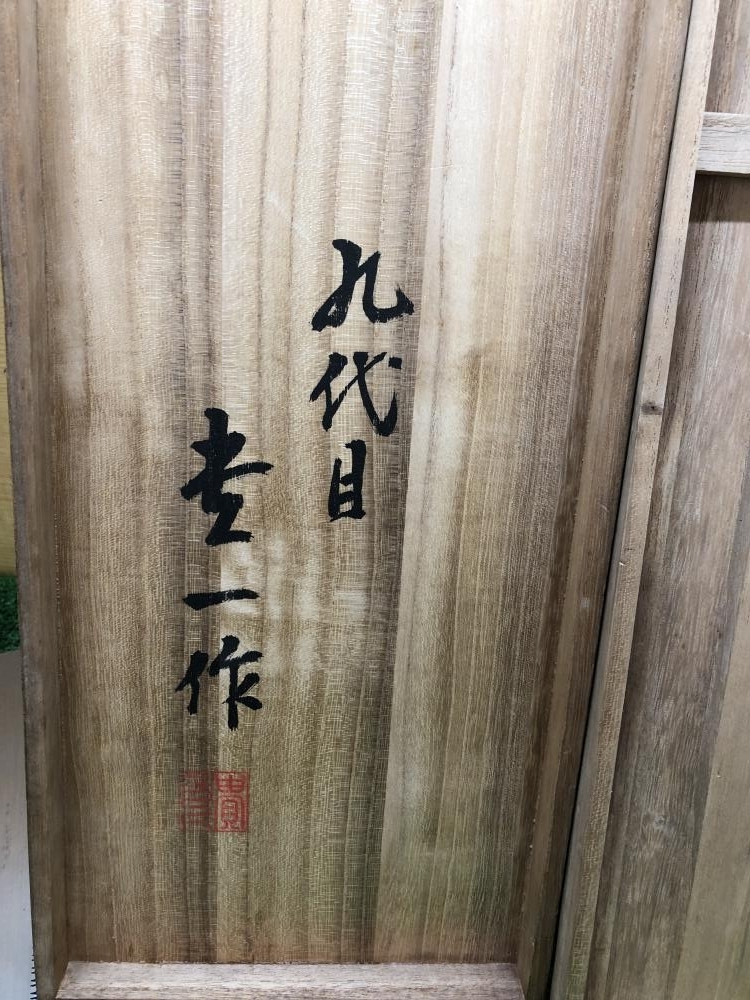 九代目
貴一作